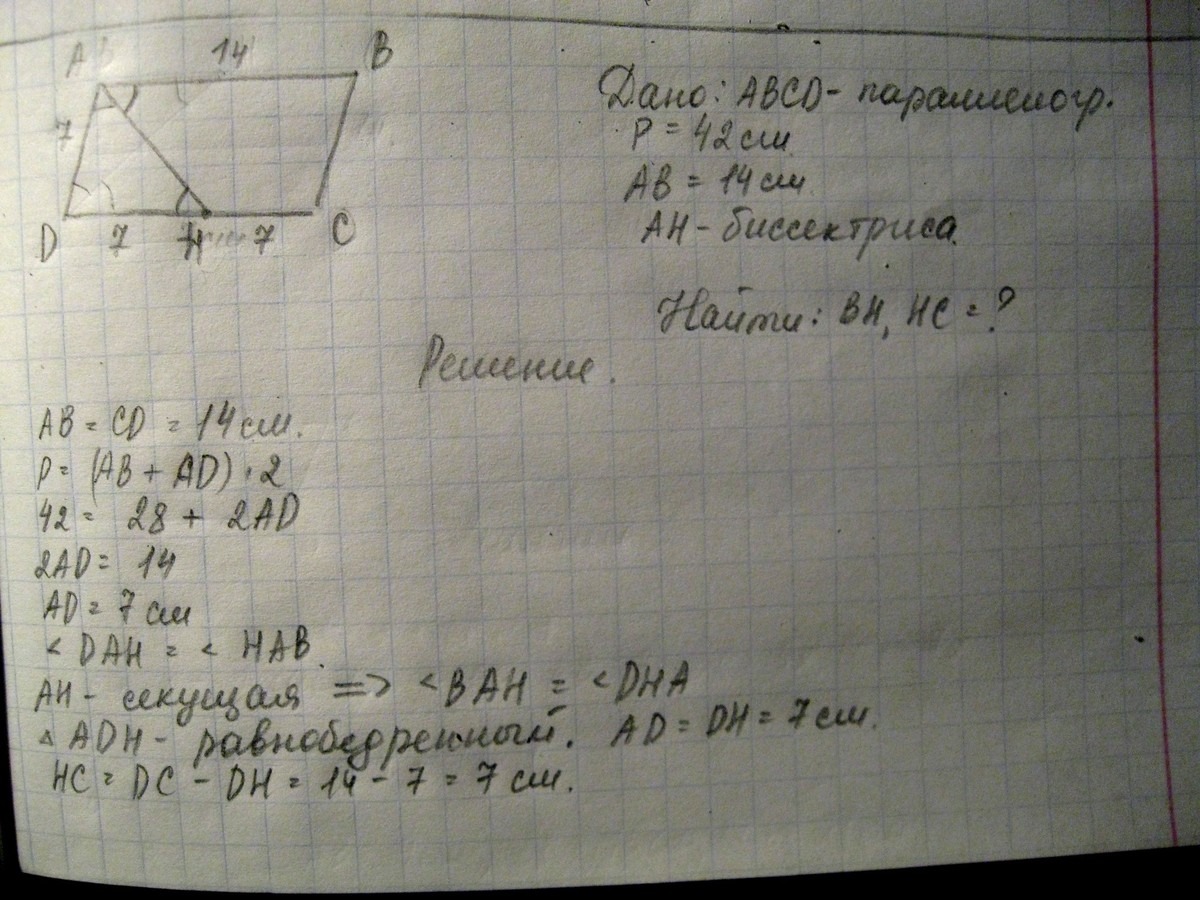 A 14 B
7
D 7 H 7 C
Дано: ABCD - параллелогр.
P = 42 см
AB = 14 см
AH - биссектриса.
Найти: BH, HC = ?
Решение.
AB = CD = 14 см.
P = (AB + AD) · 2
42 = 28 + 2AD
2AD = 14
AD = 7 см
< DAH = < HAB.
AH - секущая => < BAH = < DHA
▵ ADH - равнобедренный. AD = DH = 7 см.
HC = DC - DH = 14 - 7 = 7 см.